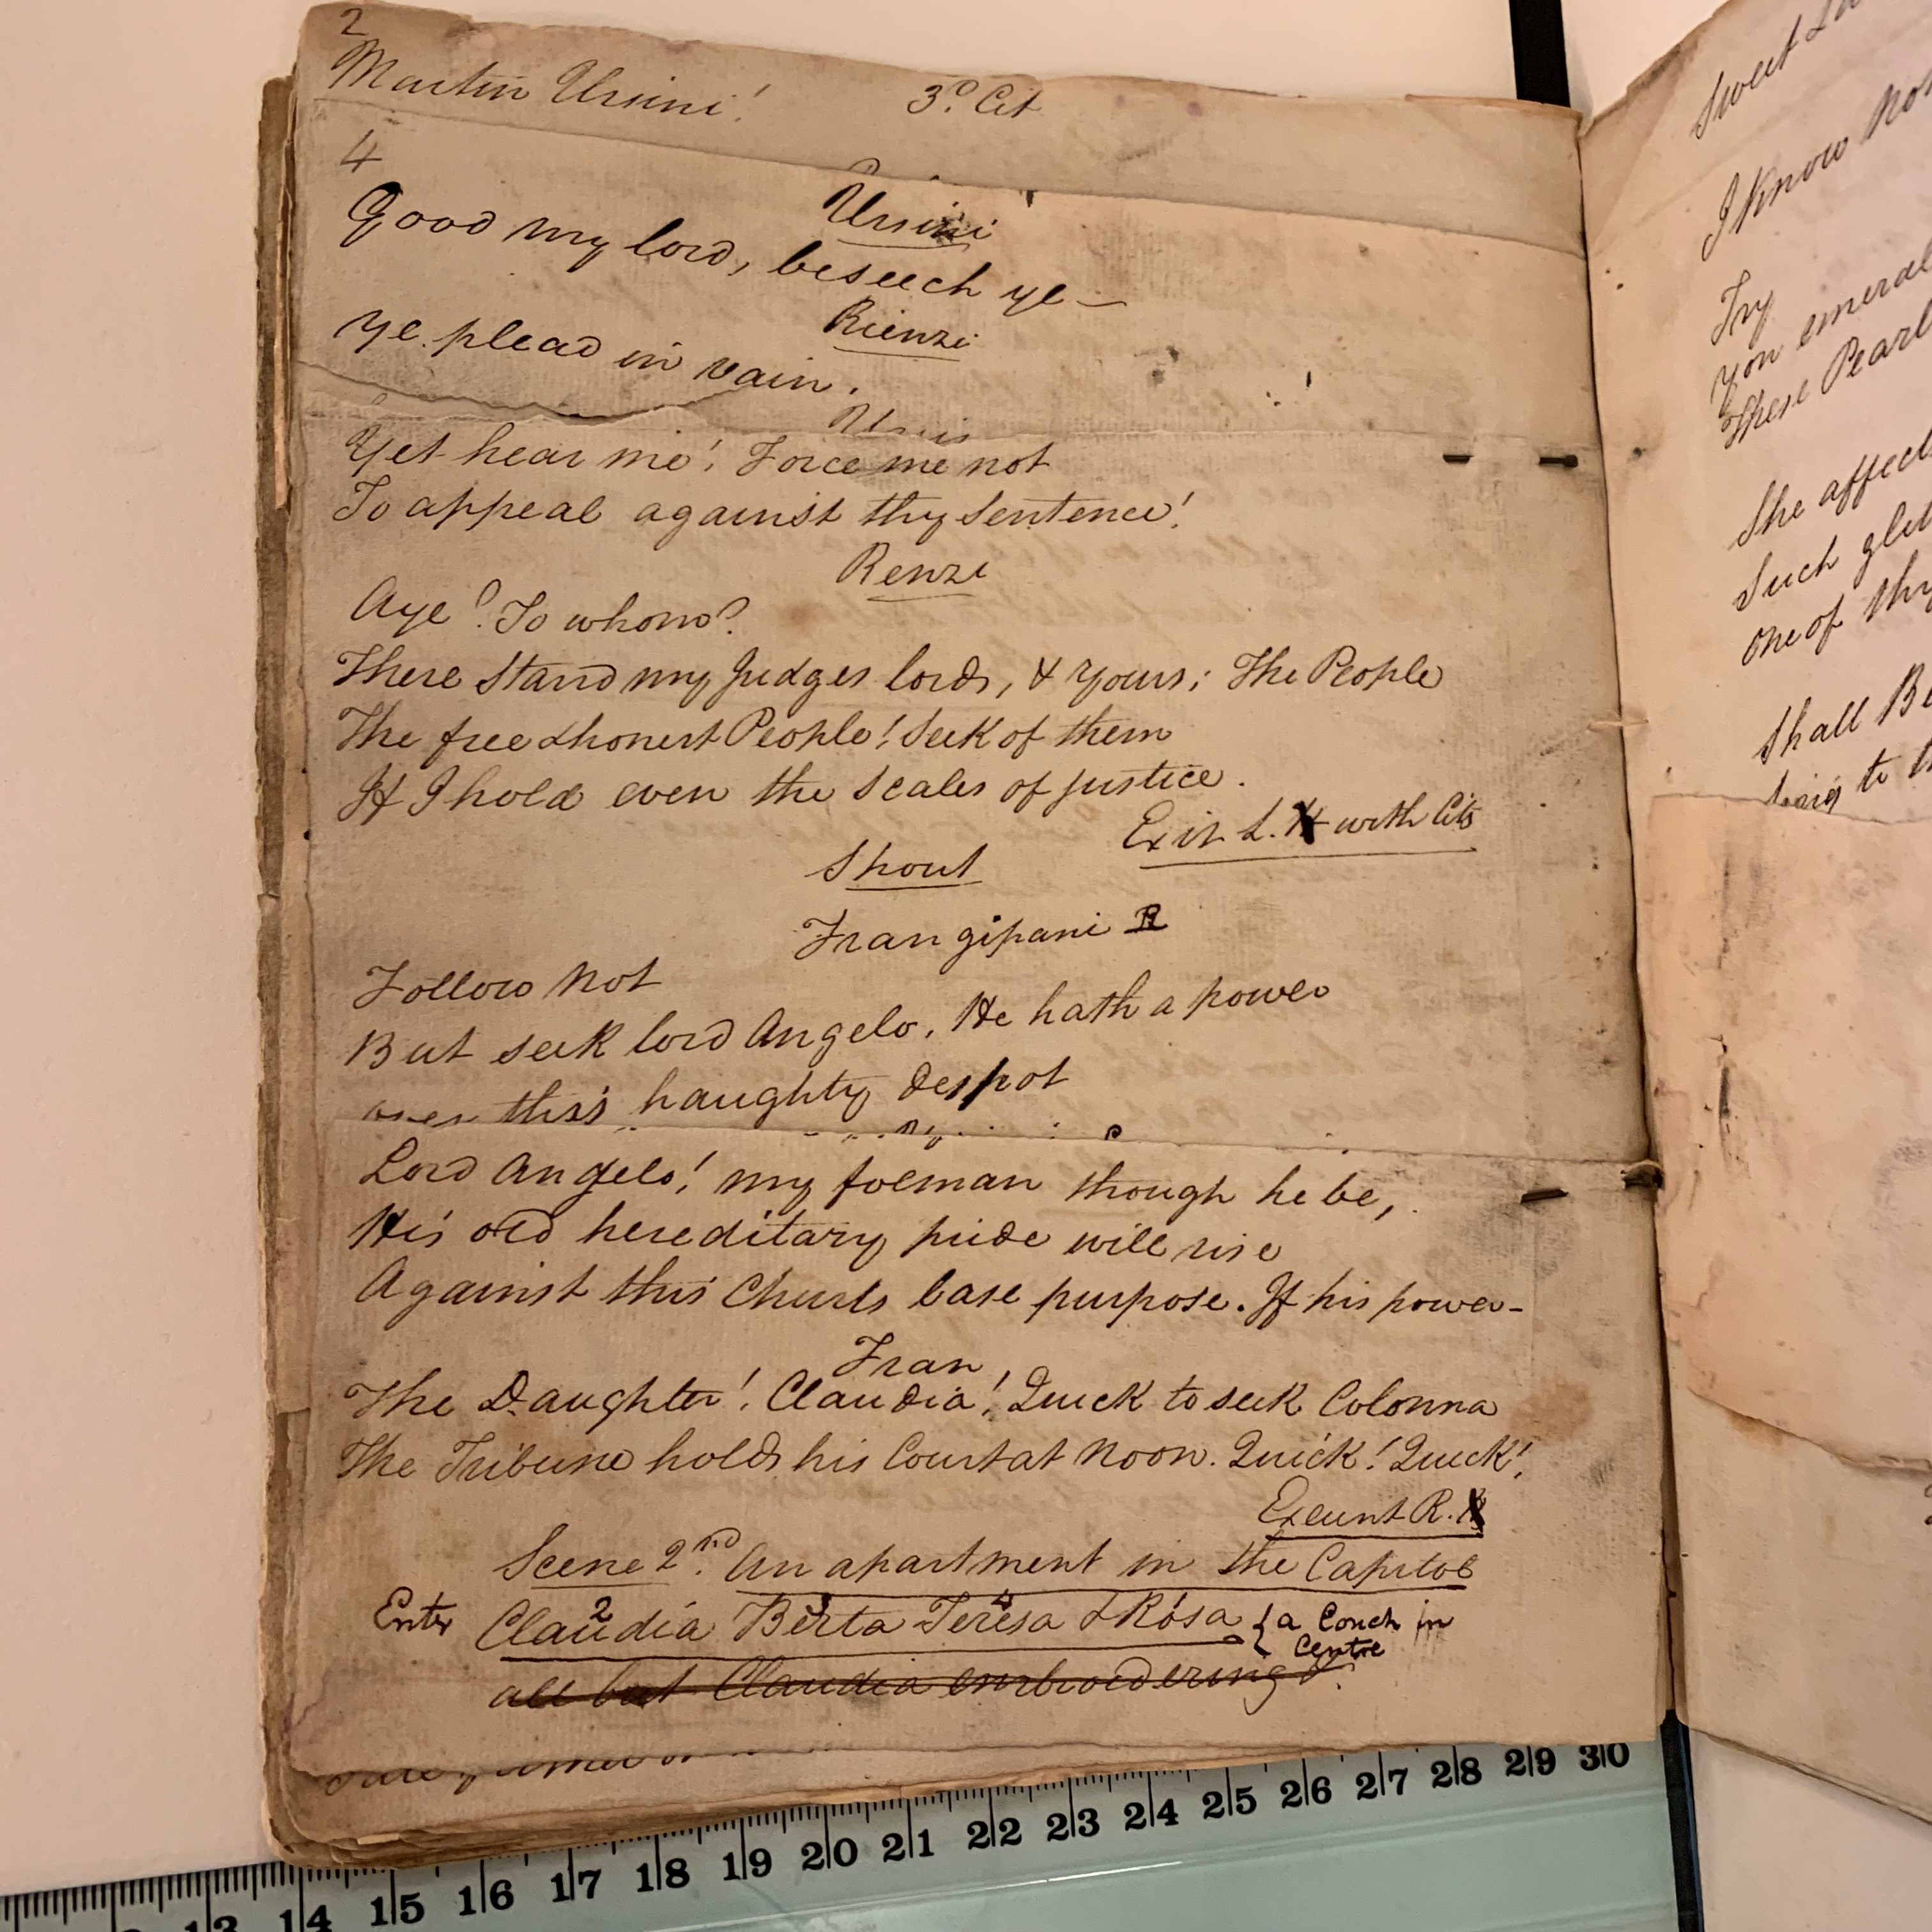 2
Martin Ursini! 3º. Cit
4
Ursini
Good my lord, beseech ye—
Rienzi
Ye plead in vain.
Yet hear me! Force me not
To appeal against thy Sentence!
Renzi
Aye? To whom?
There Stand my Judges lords, & Yours; The People
The free & honest People! Seek of them
If I hold even the Scales of justice.
Exit L. with Cits
Shout
Frangipani R
Follow Not
But seek lord Angelo, He hath a power
over this haughty despot
Lord Angelo! my foeman though he be,
His old hereditary pride will rise
Against this Churls base purpose. If his power-
Fran
The Daughter! Claudia! Quick to seek Colonna
The Tribune holds his Court at Noon. Quick! Quick!
Exeunt R.
Scene 2nd. An apartment in the Capitol
2 3 4
Enter Claudia Berta Teresa & Rosa { a Couch in
Centre
all but Claudia embroidering
Sweet
I Know Not
Try
You emeral
These Pearl
She affect
Such glit
One of thy
Shall Be
to
13 14 15 16 17 18 19 20 21 22 23 24 25 26 27 28 29 30